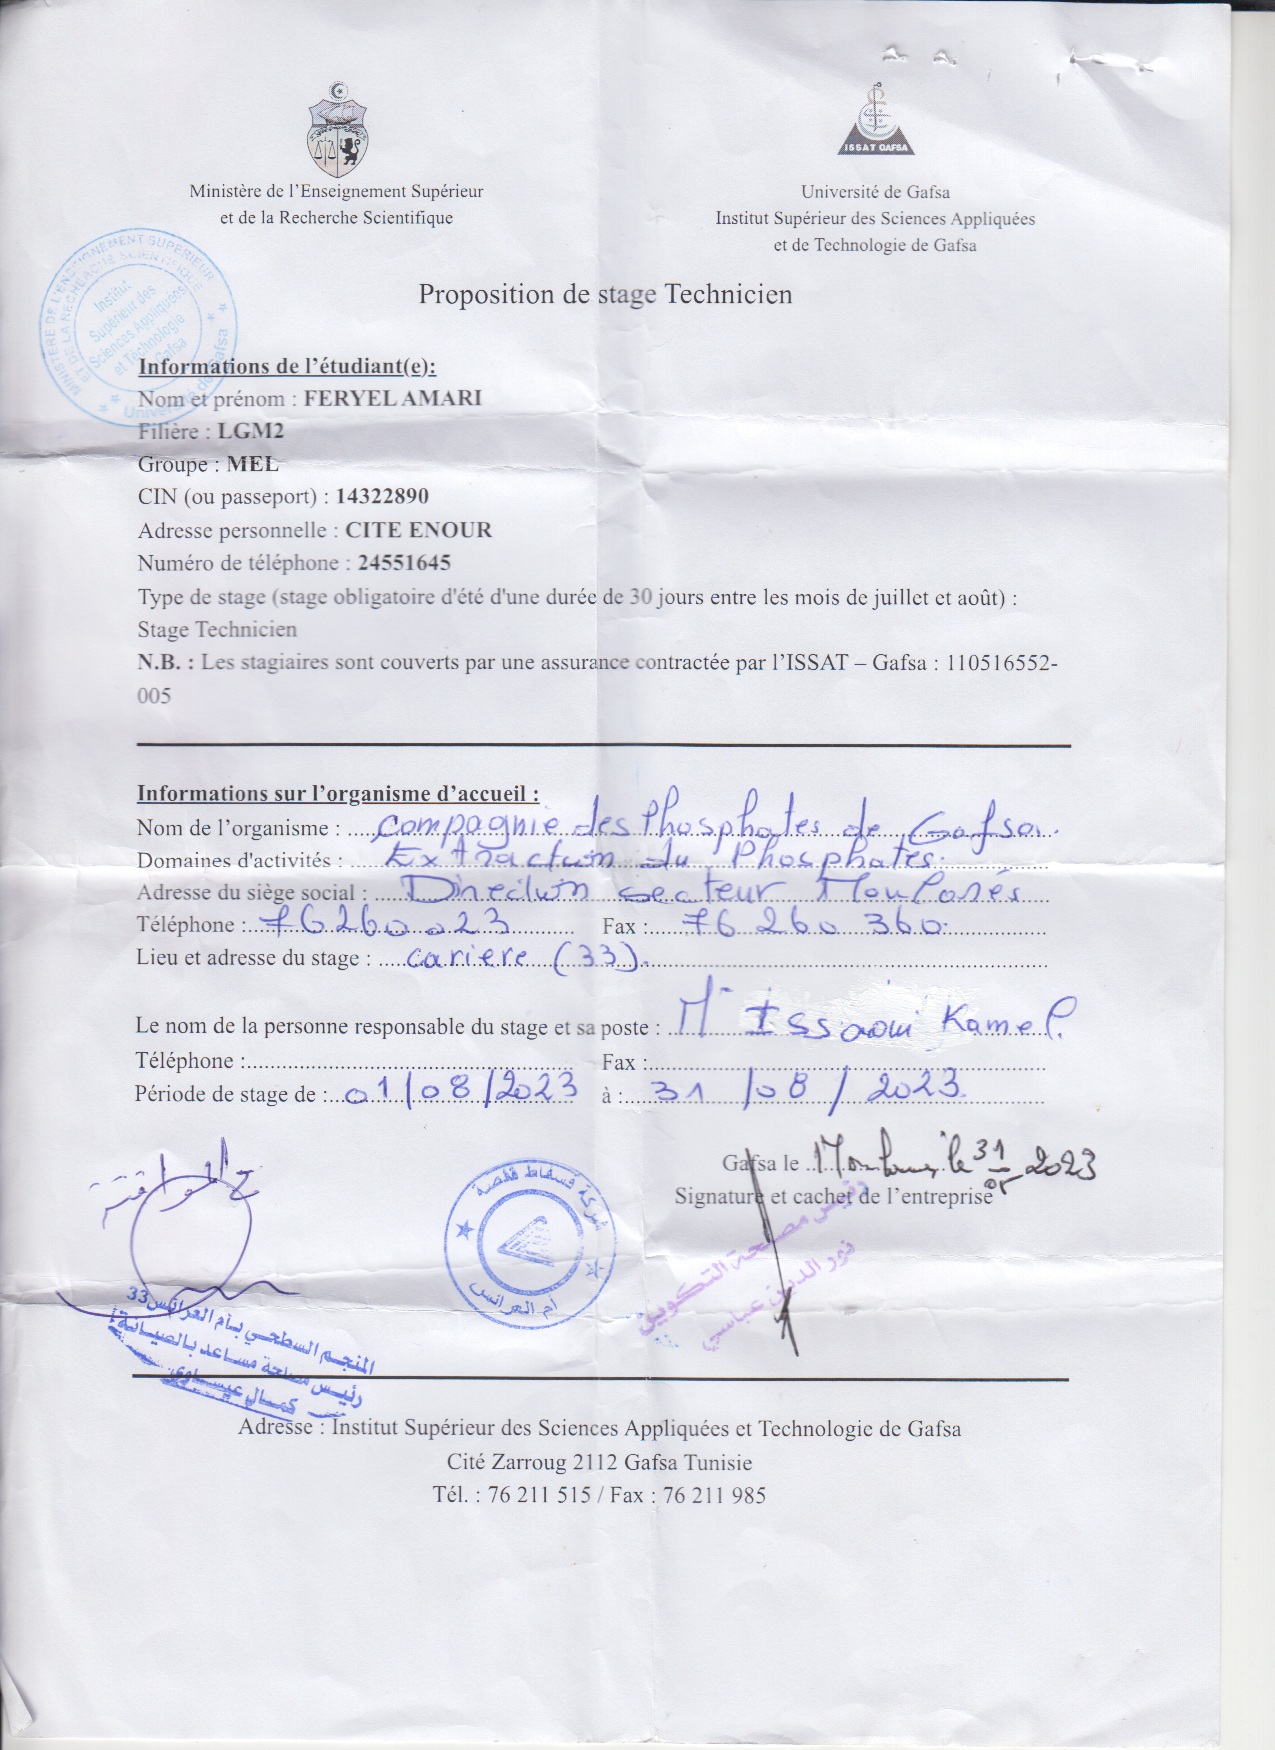 Ministère de l'Enseignement Supérieur
et de la Recherche Scientifique
ISSAT GAFSA
Université de Gafsa
Institut Supérieur des Sciences Appliquées
et de Technologie de Gafsa
MINISTERE DE L'ENSEIGNEMENT SUPERIEUR
ET DE LA RECHERCHE SCIENTIFIQUE
Institut
Supérieur des
Sciences Appliquées
et Technologie
Gafsa
Université de Gafsa
Proposition de stage Technicien
Informations de l'étudiant(e):
Nom et prénom : FERYEL AMARI
Filière : LGM2
Groupe : MEL
CIN (ou passeport) : 14322890
Adresse personnelle : CITE ENOUR
Numéro de téléphone : 24551645
Type de stage (stage obligatoire d'été d'une durée de 30 jours entre les mois de juillet et août) :
Stage Technicien
N.B. : Les stagiaires sont couverts par une assurance contractée par l'ISSAT – Gafsa : 110516552-
005
Informations sur l'organisme d'accueil :
Nom de l'organisme : Compagnie des Phosphates de Gafsa.
Domaines d'activités : Extraction du Phosphates.
Adresse du siège social : Direction secteur
Téléphone : 76260023 Fax : 76 260 360
Lieu et adresse du stage : cariere (33).
Le nom de la personne responsable du stage et sa poste : Mr Issaoui Kamel.
Téléphone : Fax :
Période de stage de : 01/08/2023 à : 31/08/2023
Gafsa le le 31 2023
Signature et cachet de l'entreprise
مع الموافقة
شركة فسفاط قفصة
أم العرائس
رئيس مصلحة التكوين
نور الدين عباسي
المنجم السطحي بأم العرائس 33
رئيس مصلحة مساعد بالصيانة
كمال عيساوي
Adresse : Institut Supérieur des Sciences Appliquées et Technologie de Gafsa
Cité Zarroug 2112 Gafsa Tunisie
Tél. : 76 211 515 / Fax : 76 211 985